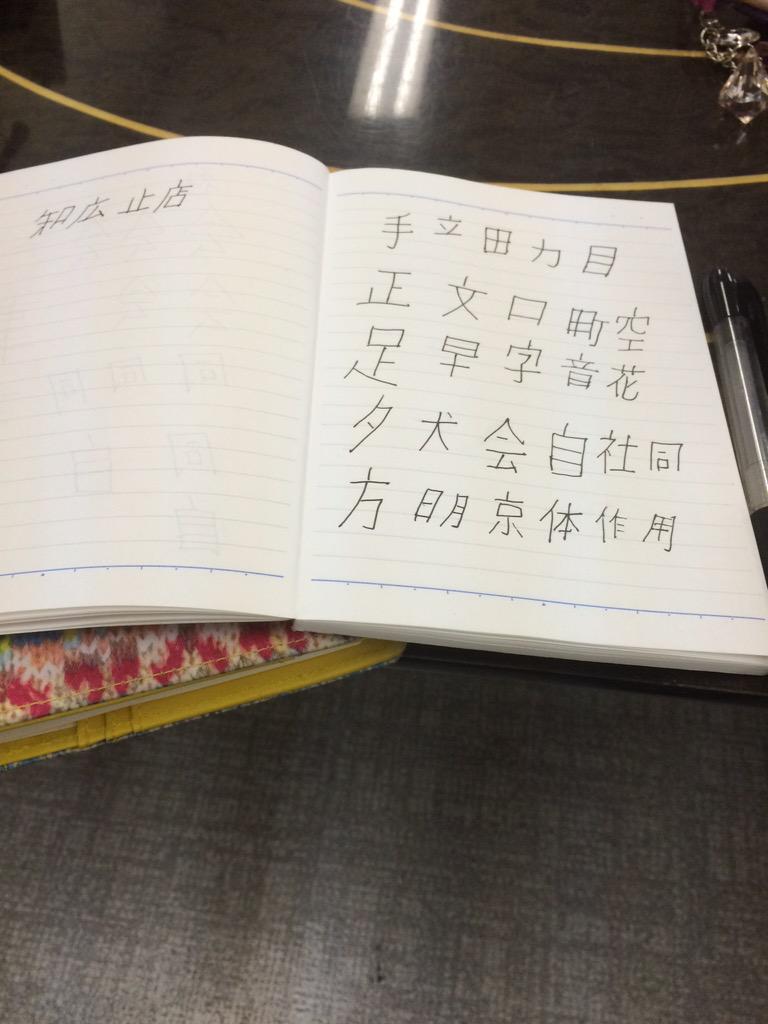 知広止店
手立田力目
正文口町空
足早字音花
夕犬会自社同
方明京体作用